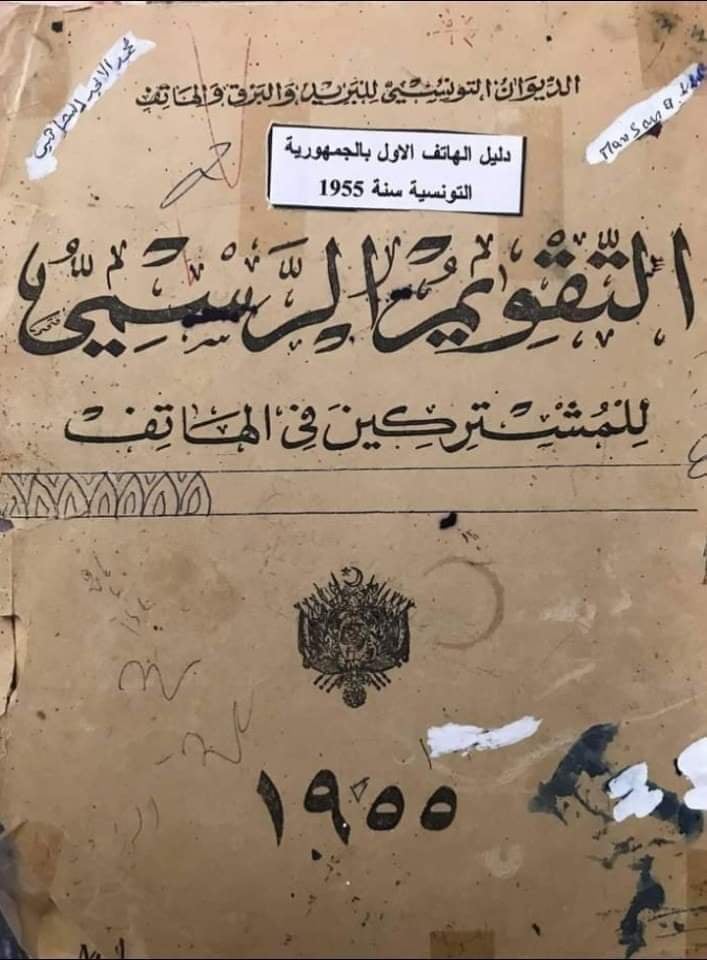 الديوان التونسي للبريد والبرق والهاتف
دليل الهاتف الاول بالجمهورية
التونسية سنة 1955
التَّقْوِيمُ الرَّسْمِيُّ
لِلْمُشْتَرِكِينَ فِي الهَاتِف
١٩٥٥